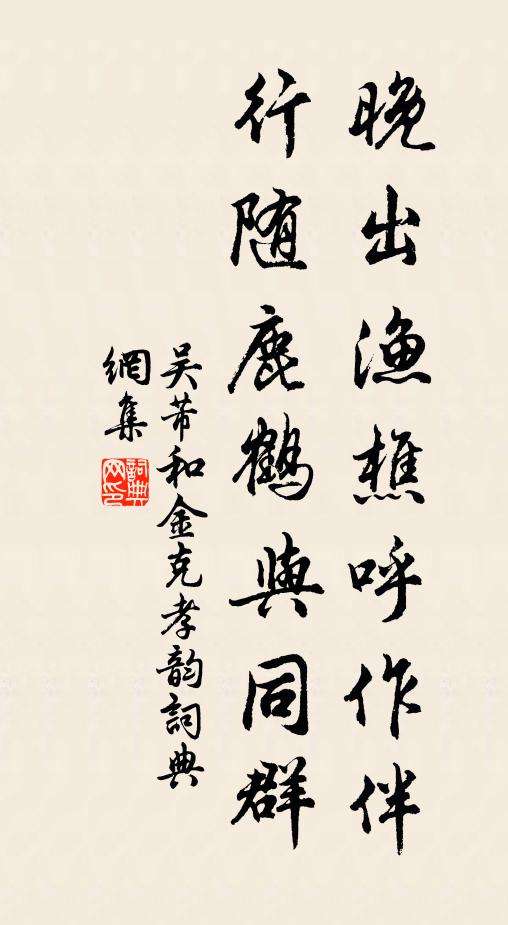 晚出漁樵呼作伴
行随鹿鶴與同群
吴芾和金克孝韵詞典
網集
詞典网印